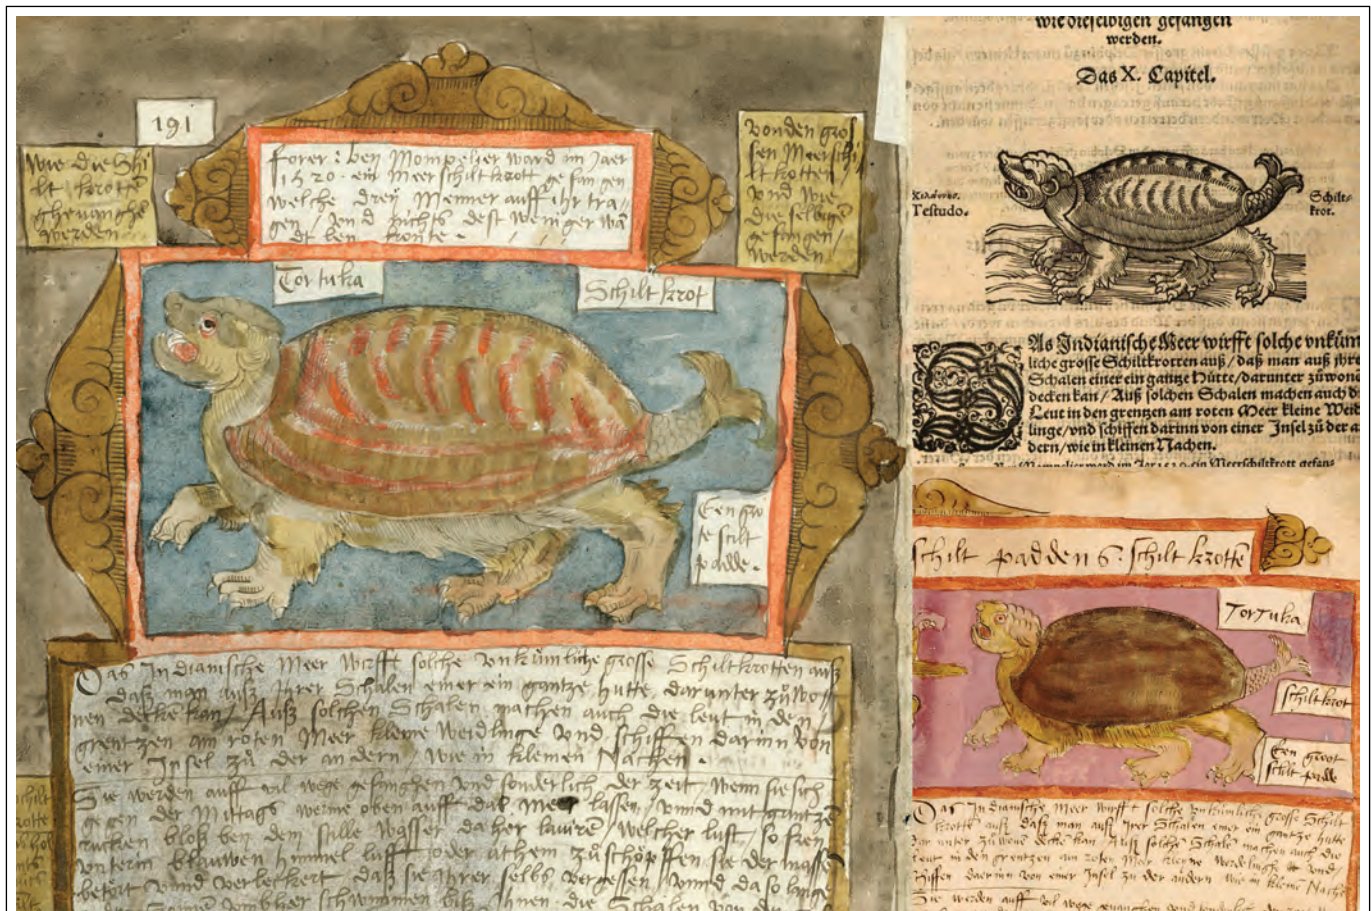 191
Wie die Schi
lt krotten
ghevanghē
werden
Forer: ben Mompelier ward im Jaer
1520. ein Meerschiltkrott gefangen
welche dreÿ Menner auff ihr tra-
gen / vnd nichts dest weniger wā
dlē ben konte.
von den gros
sen Meerschi
lt krotten
vnd wie
die selbigē
gefangen /
werden
Tortuka
Schilt krot
Een gro
te scilt
padde.
Das Indianische Meer wirfft solche vnkümliche grosse Schiltkrotten auß
daß man auß Ihrer Schalen einer ein gantze hutte, darunter zů wo-
nen deckē kan / Auß solchen Schalen machen auch die leut in den /
grentzen am roten Meer kleine Weidlinge vnd schiffen darinn von
einer Insel zů der andern / wie in kleinen Nachen.
Sie werden auff vil wege gefanghen vnd sonderlich der zeit, wenn sie sich
gegen der Mittags werme oben auff daß meer lassen, vnnd mit gantzē
rucken bloß ben dem stille wasser daher laurē / welcher lust, so fren
vnterm blauwen himmel lufft oder athem zů schöpffen sie der massē
betort vnnd verleckert daß sie ihrer selbs vergessen / vnnd da so lange
schwimmen biß ihnen die Schalen von der
wie dieselbigen gefangen
werden.
Das X. Capitel.
Testudo.
Schilt-
krot.
DAs Indianische Meer wirfft solche vnküm
liche grosse Schiltkrotten auß / daß man auß ihre
Schalen einer ein gantze Hütte / darunter zů wone
decken kan / Auß solchen Schalen machen auch di
Leut in den grentzen am roten Meer kleine Weid
linge / vnd schiffen darinn von einer Insel zů der a
dern / wie in kleinen Nachen.
Mompelier ward im Jar 1520. ein Meerschiltkrott gefan-
schilt padden 6. schilt krottē
Tortuka
schiltkrot
Een groot
scilt padde
Das Indianische Meer wirfft solche vnkümliche grosse Schilt
krottē auß daß man auß Irer Schalen einer ein gantze hutte
dar unter zů wonē deckē kan / Auß solchē Schalē machen auch die
leut in den grentzen am roten Meer kleine Weidlinge vnd /
schiffen daerinn von einer Insel zu der andern wie in kleine Nachē
Sie werden auff vil wege